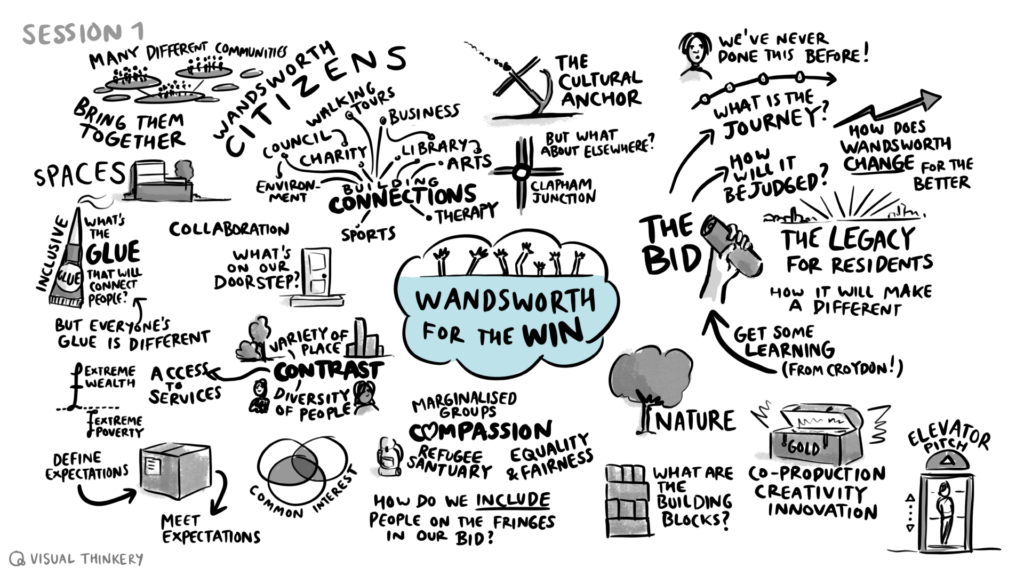 SESSION 1
MANY DIFFERENT COMMUNITIES
BRING THEM
TOGETHER
WANDSWORTH
CITIZENS
WALKING
TOURS
BUSINESS
COUNCIL
CHARITY
LIBRARY
ARTS
ENVIRON-
MENT
BUILDING
CONNECTIONS
THERAPY
SPORTS
THE
CULTURAL
ANCHOR
BUT WHAT
ABOUT ELSEWHERE?
CLAPHAM
JUNCTION
WE'VE NEVER
DONE THIS BEFORE!
WHAT IS THE
JOURNEY?
HOW DOES
WANDSWORTH
CHANGE FOR THE
BETTER
HOW
WILL IT
BE JUDGED?
THE
BID
THE LEGACY
FOR RESIDENTS
HOW IT WILL MAKE
A DIFFERENT
GET SOME
LEARNING
(FROM CROYDON!)
SPACES
INCLUSIVE
GLUE
WHAT'S
THE
GLUE
THAT WILL
CONNECT
PEOPLE?
BUT EVERYONE'S
GLUE IS DIFFERENT
COLLABORATION
WHAT'S
ON OUR
DOORSTEP?
WANDSWORTH
FOR THE WIN
VARIETY OF
PLACE
CONTRAST
DIVERSITY
OF PEOPLE
ACCESS
TO
SERVICES
EXTREME
WEALTH
EXTREME
POVERTY
DEFINE
EXPECTATIONS
MEET
EXPECTATIONS
COMMON INTEREST
MARGINALISED
GROUPS
COMPASSION
REFUGEE
SANTUARY
EQUALITY
& FAIRNESS
HOW DO WE INCLUDE
PEOPLE ON THE FRINGES
IN OUR BID?
NATURE
WHAT ARE
THE
BUILDING
BLOCKS?
GOLD
CO-PRODUCTION
CREATIVITY
INNOVATION
ELEVATOR
PITCH
VISUAL THINKERY